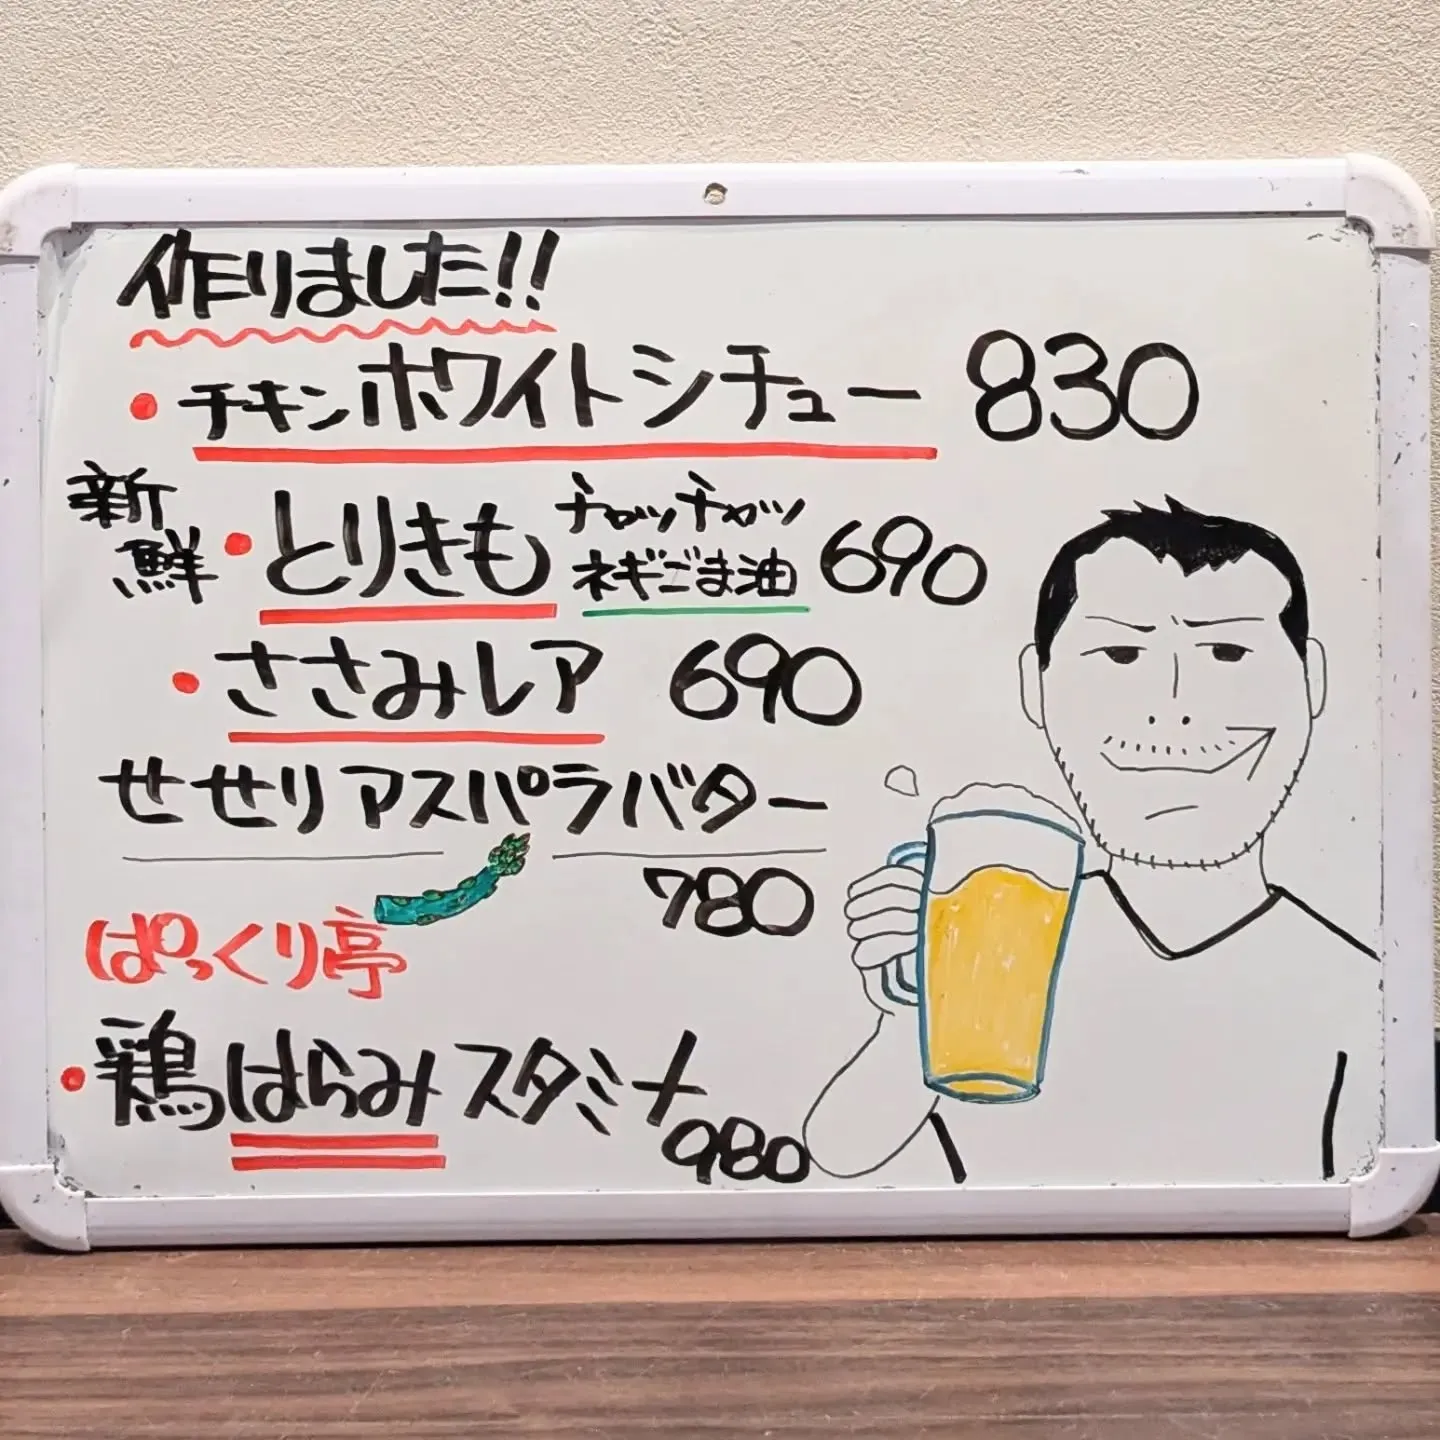 作りました!!
・チキンホワイトシチュー 830
新鮮・とりきも チャッチャッ ネギごま油 690
・ささみレア 690
せせりアスパラバター
780
ぱっくり亭
・鶏はらみスタミナ
980